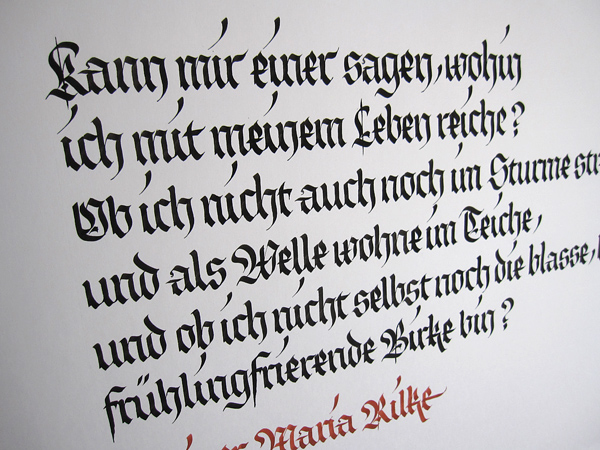 Kann mir einer sagen, wohin
ich mit meinem Leben reiche?
Ob ich nicht auch noch im Sturme str
und als Welle wohne im Teiche,
und ob ich nicht selbst noch die blasse,
frühlingfrierende Birke bin?
Maria Rilke